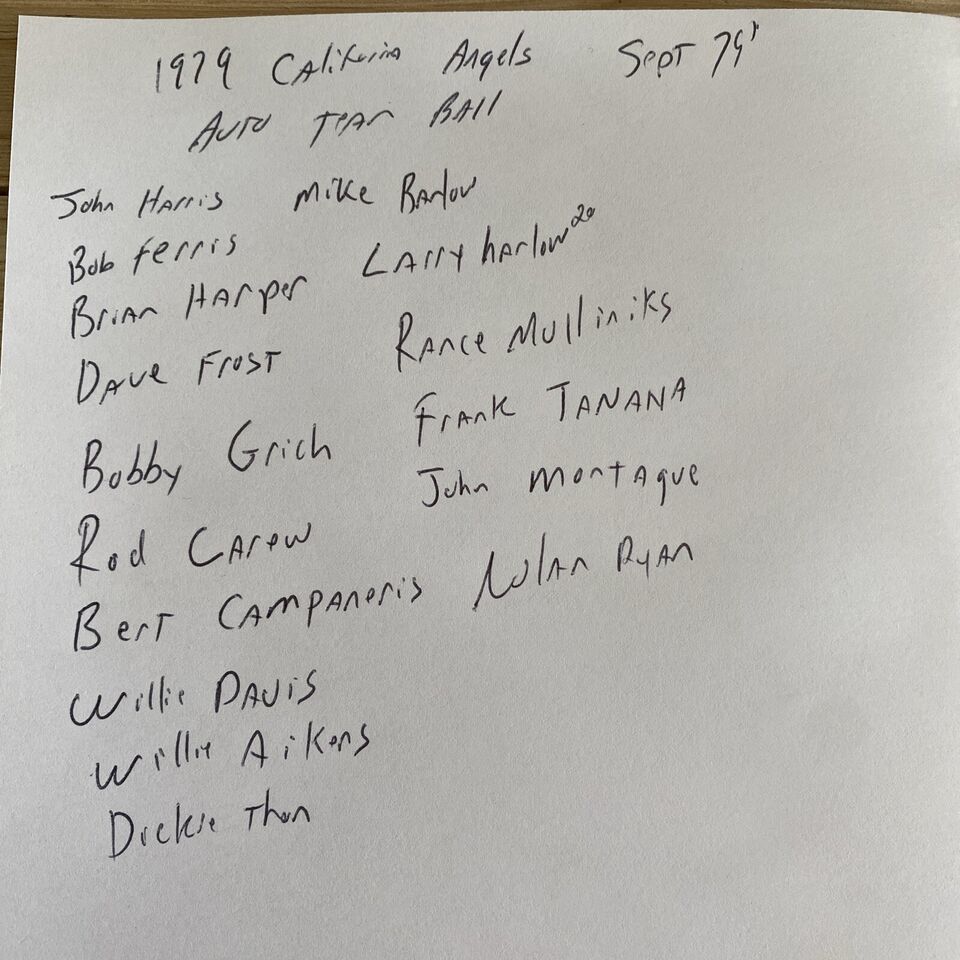 1979 California Angels Sept 79'
Auto Team Ball
John Harris Mike Barlow
Bob Ferris
Brian Harper Larry harlow 20
Dave Frost Rance Mulliniks
Bobby Grich Frank TANANA
Rod Carew John Montague
Bert Campaneris Nolan Ryan
Willie Davis
Willie Aikens
Dickie Thon